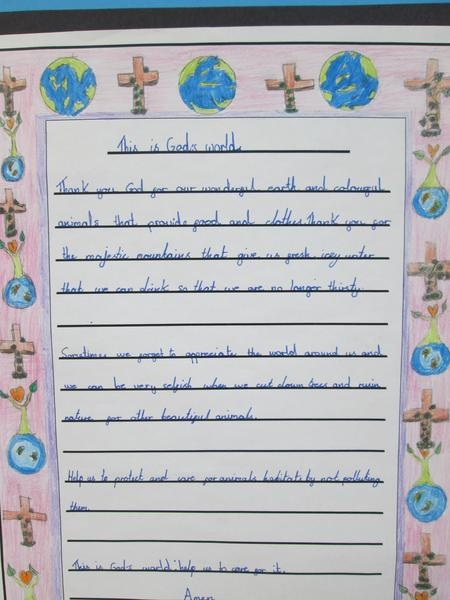 This is God's world.
Thank you God for our wonderful earth and colourful
animals that provide food and clothes. Thank you for
the majestic mountains that give us fresh, icey water
that we can drink so that we are no longer thirsty.
Sometimes we forget to appreciate the world around us and
we can be very selfish when we cut down trees and ruin
nature for other beautiful animals.
Help us to protect and care for animals habitats by not polluting
them.
This is God's world; help us to care for it.
Amen